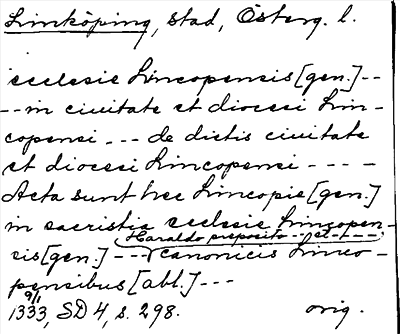 Linköping, stad, Österg. l.
ecclesie Lincopensis [gen.] - -
- - in ciuitate et diocesi Lin-
copensi - - - de dictis ciuitate
et diocesi Lincopensi - - - -
Acta sunt hec Lincopie [gen.]
in sacristia ecclesie Lincopen-
Haraldo preposito - - - et - - -
sis [gen.] - - - canonicis Linco-
pensibus [abl.] - - -
9/1
1333, SD 4, s. 298. orig.